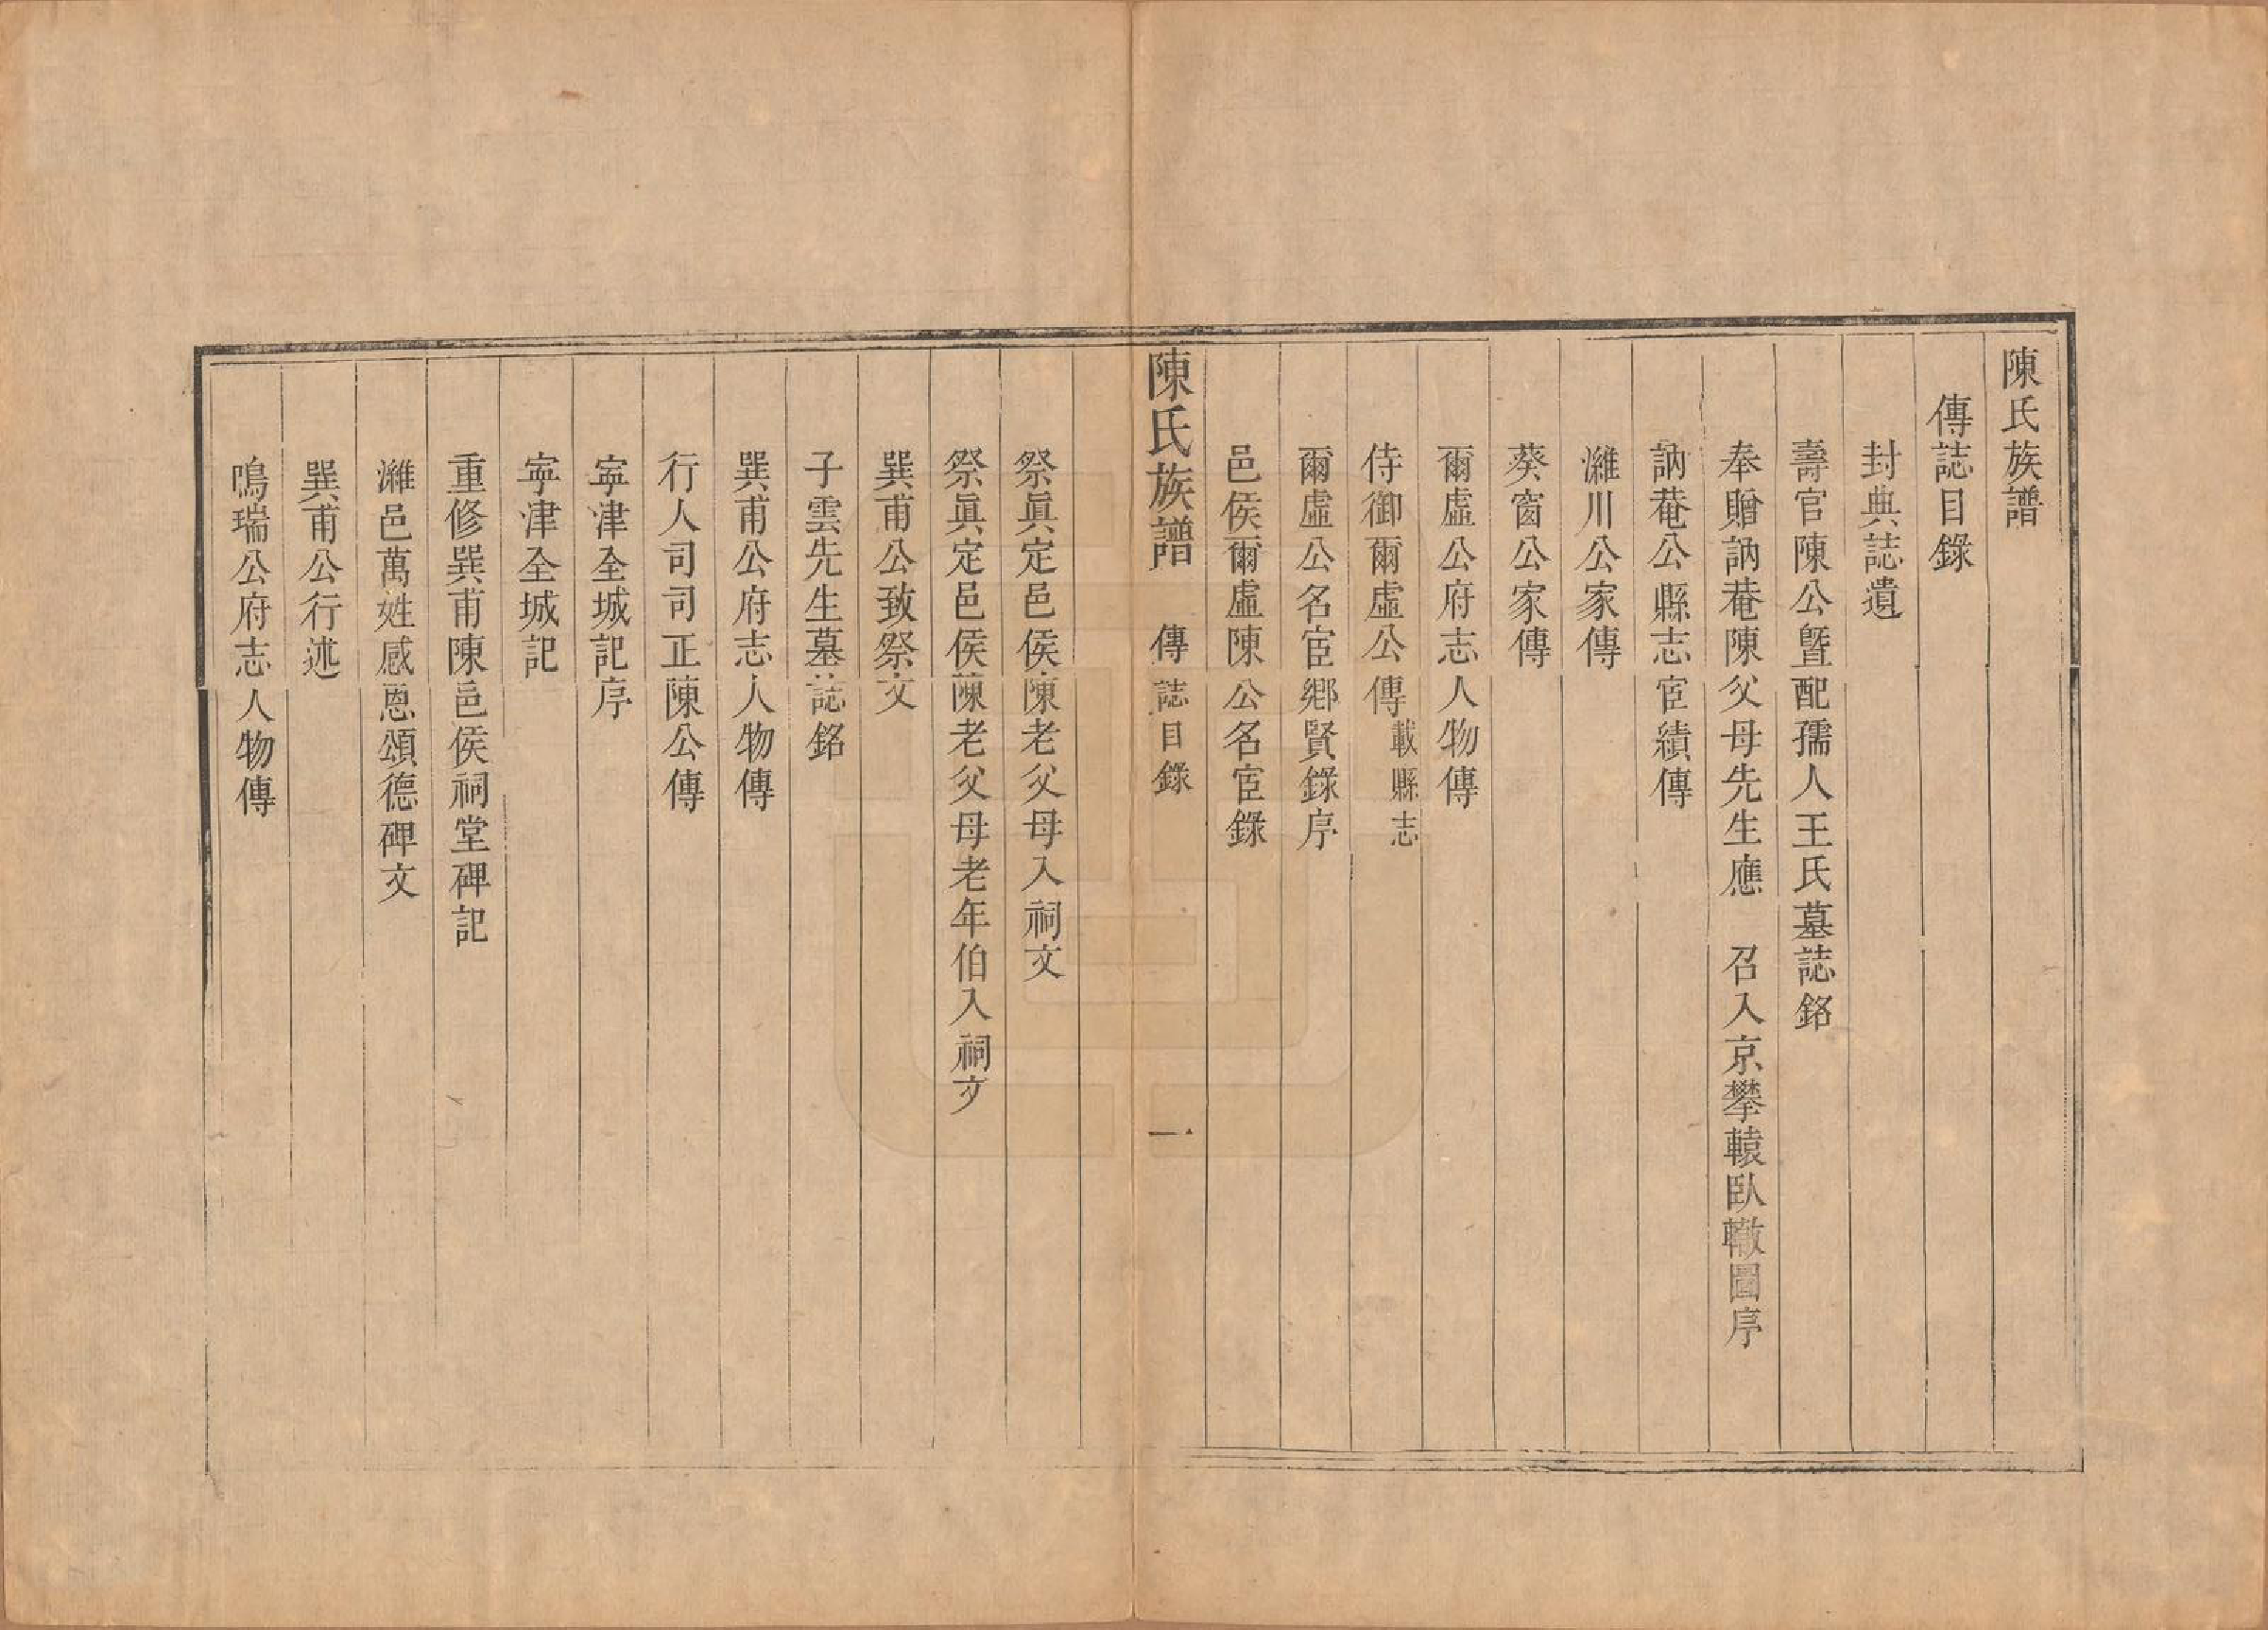 陳氏族譜
傳誌目錄
封典誌遺
壽官陳公曁配孺人王氏墓誌銘
奉贈訥菴陳父母先生應　召入京攀轅臥轍圖序
訥菴公縣志宦績傳
濰川公家傳
葵窗公家傳
爾虛公府志人物傳
侍御爾虛公傳載縣志
爾虛公名宦鄕賢錄序
邑侯爾虛陳公名宦錄
陳氏族譜　傳誌目錄　一
祭眞定邑侯陳老父母入祠文
祭眞定邑侯陳老父母老年伯入祠文
巽甫公致祭文
子雲先生墓誌銘
巽甫公府志人物傳
行人司司正陳公傳
寧津全城記序
寧津全城記
重修巽甫陳邑侯祠堂碑記
濰邑萬姓感恩頌德碑文
巽甫公行述
鳴瑞公府志人物傳